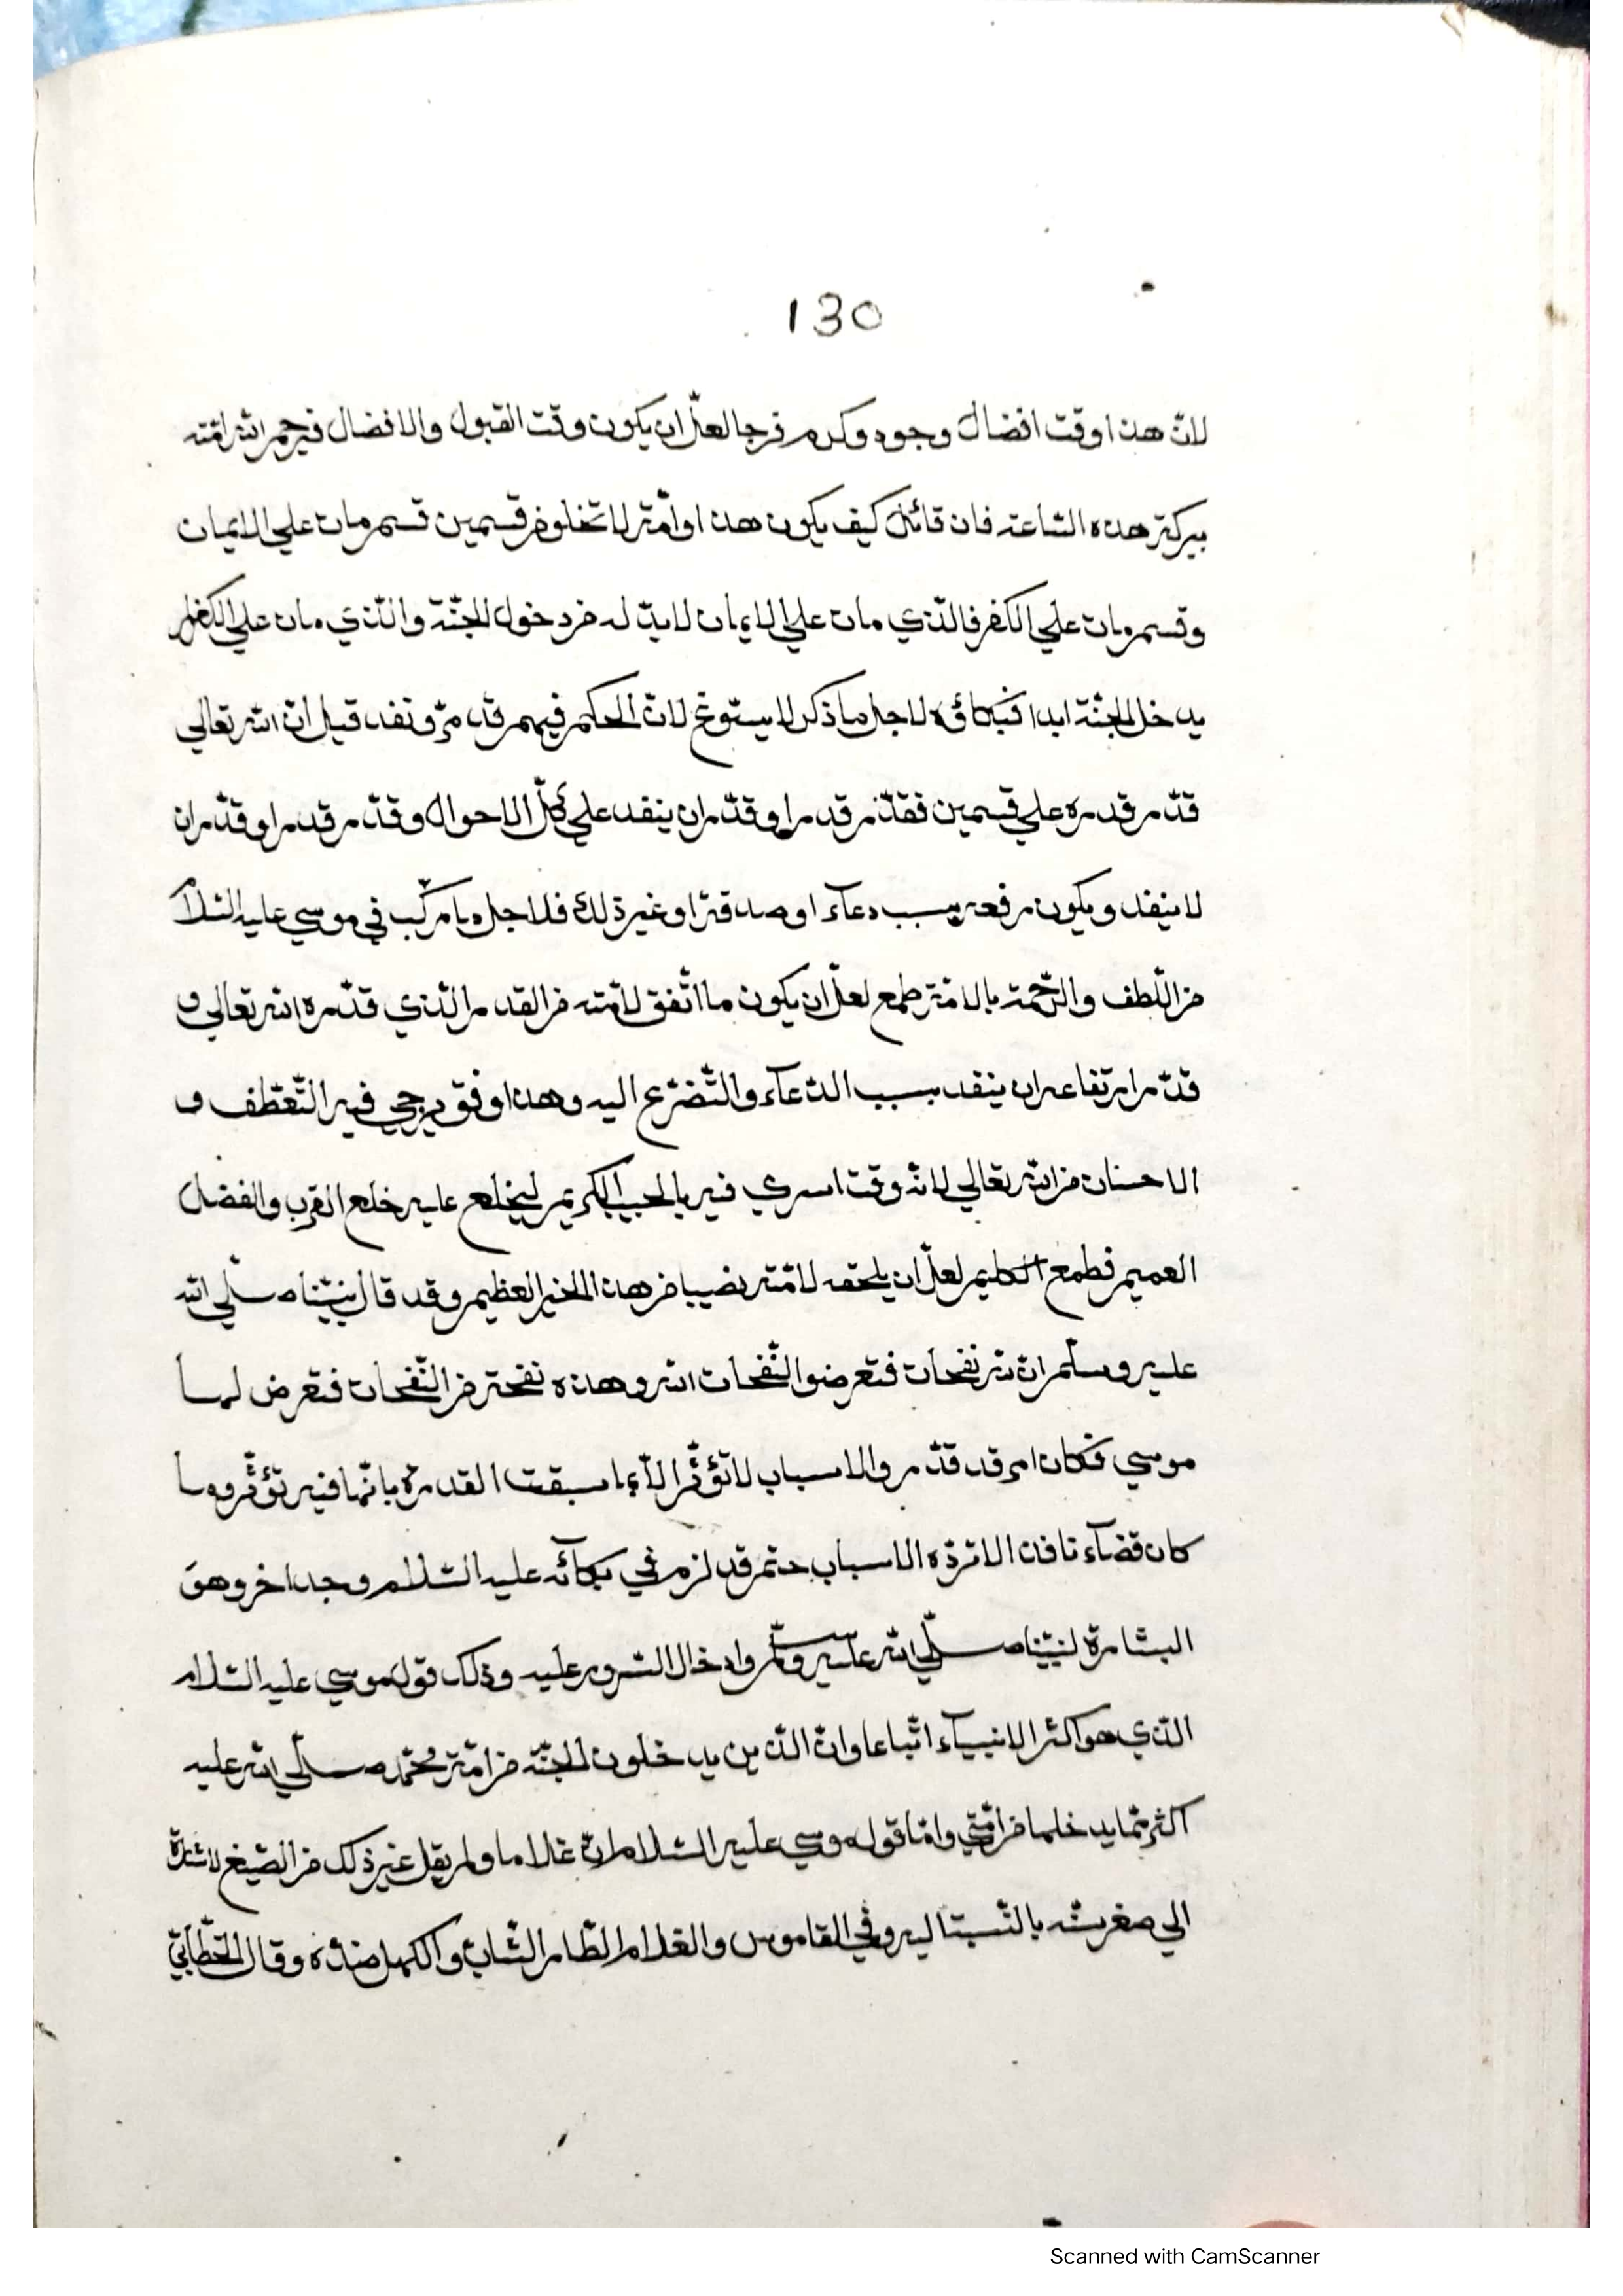 130
لانّ هذا وقت افضال وجود وكرم فرجا لعلّ ان يكون وقت القبول والافضال فيرحم الله امّته
ببركة هذه السّاعة فان قائل كيف يكون هذا وامّته لا تخلو من قسمين قسم مات علي الايمان
وقسم مات علي الكفر فالّذي مات علي الايمان لا بدّ له من دخول الجنّة والّذي مات علي الكفر لا
يدخل الجنّة ابدا فبكاؤه لاجل ما ذكر لا يستوغ لانّ الحكم فيهم قد مرّ ونفد قيل انّ الله تعالي
قدّر قدره علي قسمين فقدّر قدرا وقدّر ان ينفد علي كلّ الاحوال وقدّر قدرا وقدّر ان
لا ينفد ويكون رفعه بسبب دعآء او صدقة او غير ذلك فلاجل ما ركّب في موسي عليه السّلام
من اللّطف والرّحمة بالامّة طمع لعلّ ان يكون ما اتّفق لامّته من القدر الّذي قدّره الله تعالي و
قدّر ارتفاعه ان ينفد بسبب الدّعآء والتّضرّع اليه وهذا وقت يرجي فيه التّعطّف و
الاحسان من الله تعالي لانّه وقت اسري فيه بالحبيب الكريم ليخلع عليه خلع القرب والفضل
العميم فطمع الكليم لعلّ ان يلحقه لامّته نصيبا من هذا الخير العظيم وقد قال نبيّنا صلّي الله
عليه وسلّم انّ لله نفحات فتعرضوا النّفحات الله وهذه نفحة من النّفحات فتعرض لها
موسي فكان امر قد قدّر والاسباب لا تؤثّر الّا بما سبقت القدرة بانّها فيه تؤثّر وما
كان قضآء نافذا لا تردّه الاسباب حتم قد لزم في بكآئه عليه السّلام وجه اخر وهو
البشارة لنبيّنا صلّي الله عليه وسلّم وادخال السّرور عليه وذلك قول موسي عليه السّلام
الّذي هو اكثر الانبيآء اتّباعا وانّ الّذين يدخلون الجنّة من امّة محمّد صلّي الله عليه
اكثر ممّا يدخلها من امّتي وامّا قول موسي عليه السّلام انّ غلاما ولم يقل غير ذلك من الصّيغ لاشارة
الي صغر سنّه بالنّسبة اليه وفي القاموس والغلام الطّار الشّابّ والكهل ضدّه وقال الخطّابيّ
Scanned with CamScanner